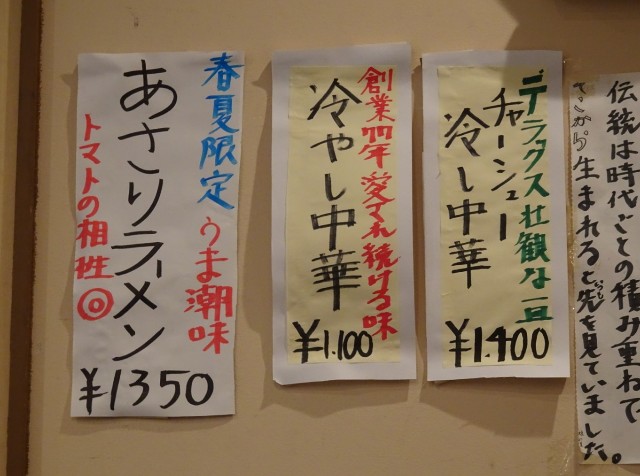 伝統は時代ごとの積み重ねで
そこから生まれると先を見ていました。
デラックス壮観な一皿
チャーシュー
冷し中華
¥1.400
創業77年 愛され続ける味
冷やし中華
¥1.100
春夏限定 うま潮味
あさりラーメン
トマトの相性◎
¥1350